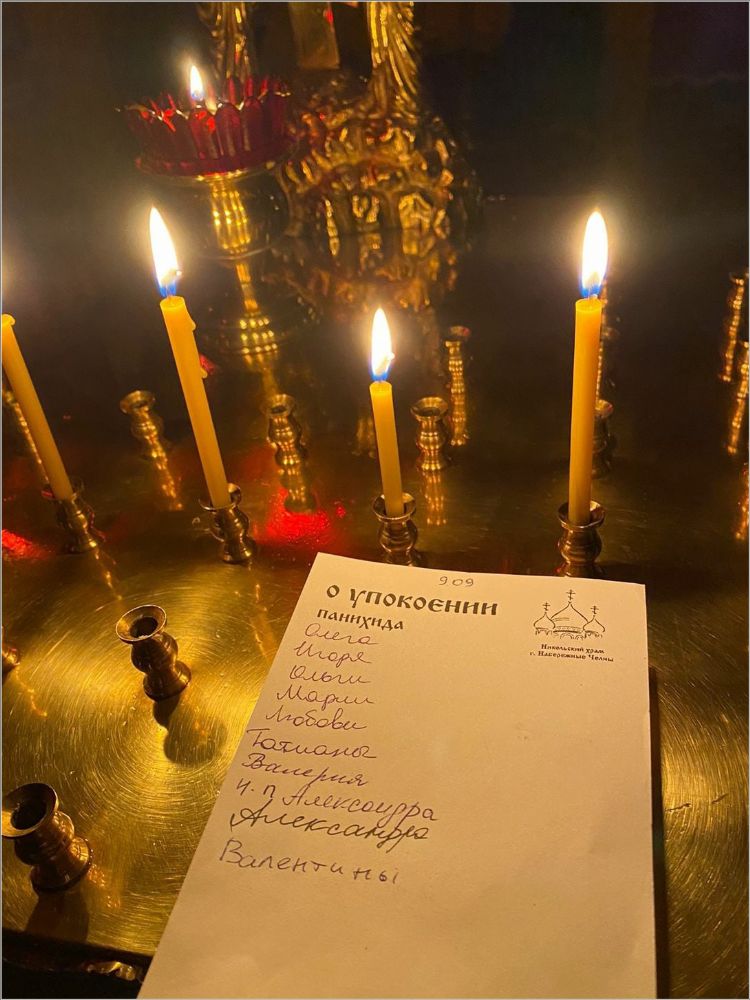 909
О УПОКОЕНИИ
ПАНИХИДА
Никольский храм
г. Набережные Челны
Олега
Игоря
Ольги
Марии
Любови
Татианы
Валерия
н. п Александра
Александра
Валентины